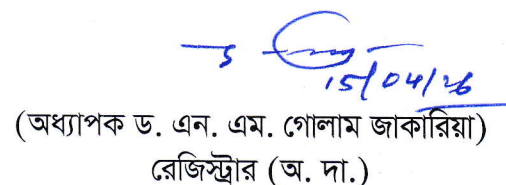 15/04/26
(অধ্যাপক ড. এন. এম. গোলাম জাকারিয়া)
রেজিস্ট্রার (অ. দা.)